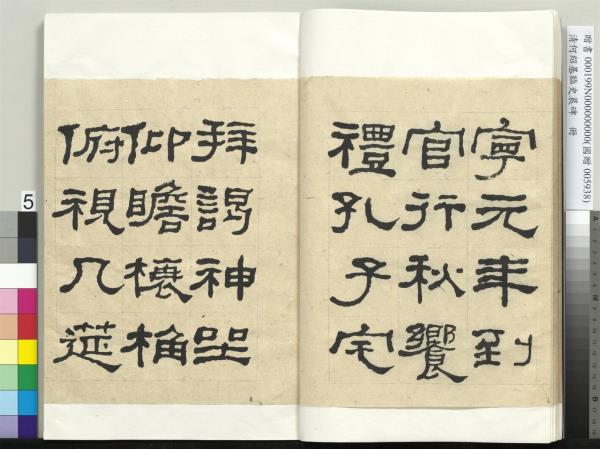 寧元年到
官行秋饗
禮孔子宅
拜謁神坐
仰瞻榱桷
俯視几筵
贈書 000199N000000000(國贈 005938)
清何紹基臨史晨碑 冊
5